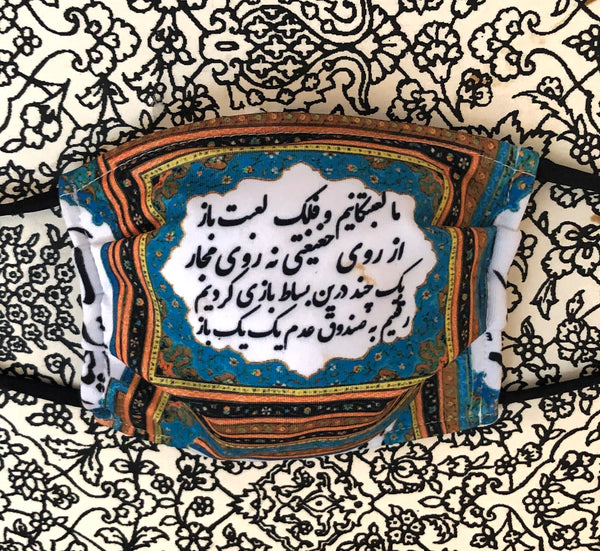 ما لعبتگانیم و فلک لعبت باز
از روی حقیقتی نه روی مجاز
یک چند درین بساط بازی کردیم
رفتیم به صندوق عدم یک یک باز